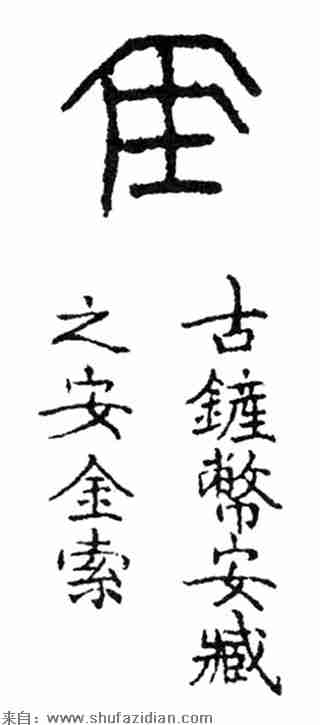 安
古鏟幣安臧
之安金索
来自：www.shufazidian.com